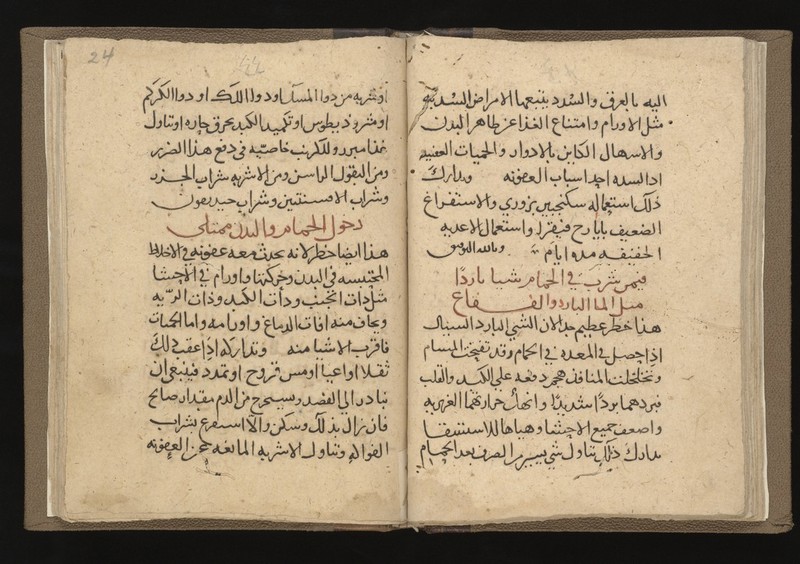 اليه بالعرق والسدد يتبعها الامراض السدديه
مثل الاورام وامتناع الغذا عن ظاهر البدن
والاسهال الكاين بالادوار والحميات العفنيه
اذ السده احد اسباب العفونه وتدارك
ذلك استعماله سكنجبين بزوري والاستفراغ
الضعيف بايارج فيقرا واستعمال الاغديه
الخفيفه مده ايام وبالله التوفيق
فيمن شرب في الحمام شيا باردا
مثل الما البارد والفقاع
هذا خطر عظيم جدا لان الشي البارد السيال
اذا حصل في المعده في الحمام وقد تفتحت المسام
وتخلخلت المنافذ هجم دفعه علي الكبد والقلب
فبردهما بردا شديدا وانهك حرارتهما الغريزيه
واضعف جميع الاحشا وهياها للاستسقا
تدارك ذلك تناول شي يسير من الصرف بعد الحمام
24
او شربه من دوا المسك او دوا اللك او دوا الكركم
او مثروديطوس او تكميد الكبد بخرق حاره او تناول
غذا مبرد وللكرنب خاصيه في دفع هذا الضرر
ومن البقول ومن الاشربه شراب
وشراب الافسنتين وشراب
دخول الحمام والبدن ممتلي
هذا ايضا خطر لانه يحدث معه عفونه في الاخلاط
المحتبسه في البدن وحركتها واورام في الاحشا
مثل ذات الجنب وذات الكبد وذات الريه
ويخاف منه افات الدماغ واورامه واما الحميات
فاقرب الاشيا منه وتداركه اذا عقب ذلك
ثقلا او اعيا او مس قروح او تمدد فينبغي ان
تبادر الي الفصد ويستخرج من الدم مقدار صالح
فان زال بذلك وسكن والا استفرغ بشراب
الفواكه وتناول الاشربه المانعه عن العفونه